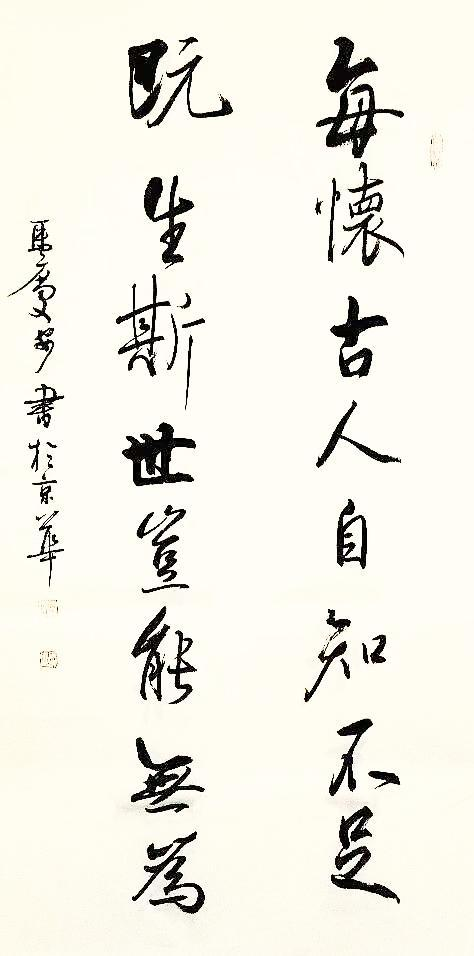 每懷古人自知不足
既生斯世豈能無為
馬慶安書於京華